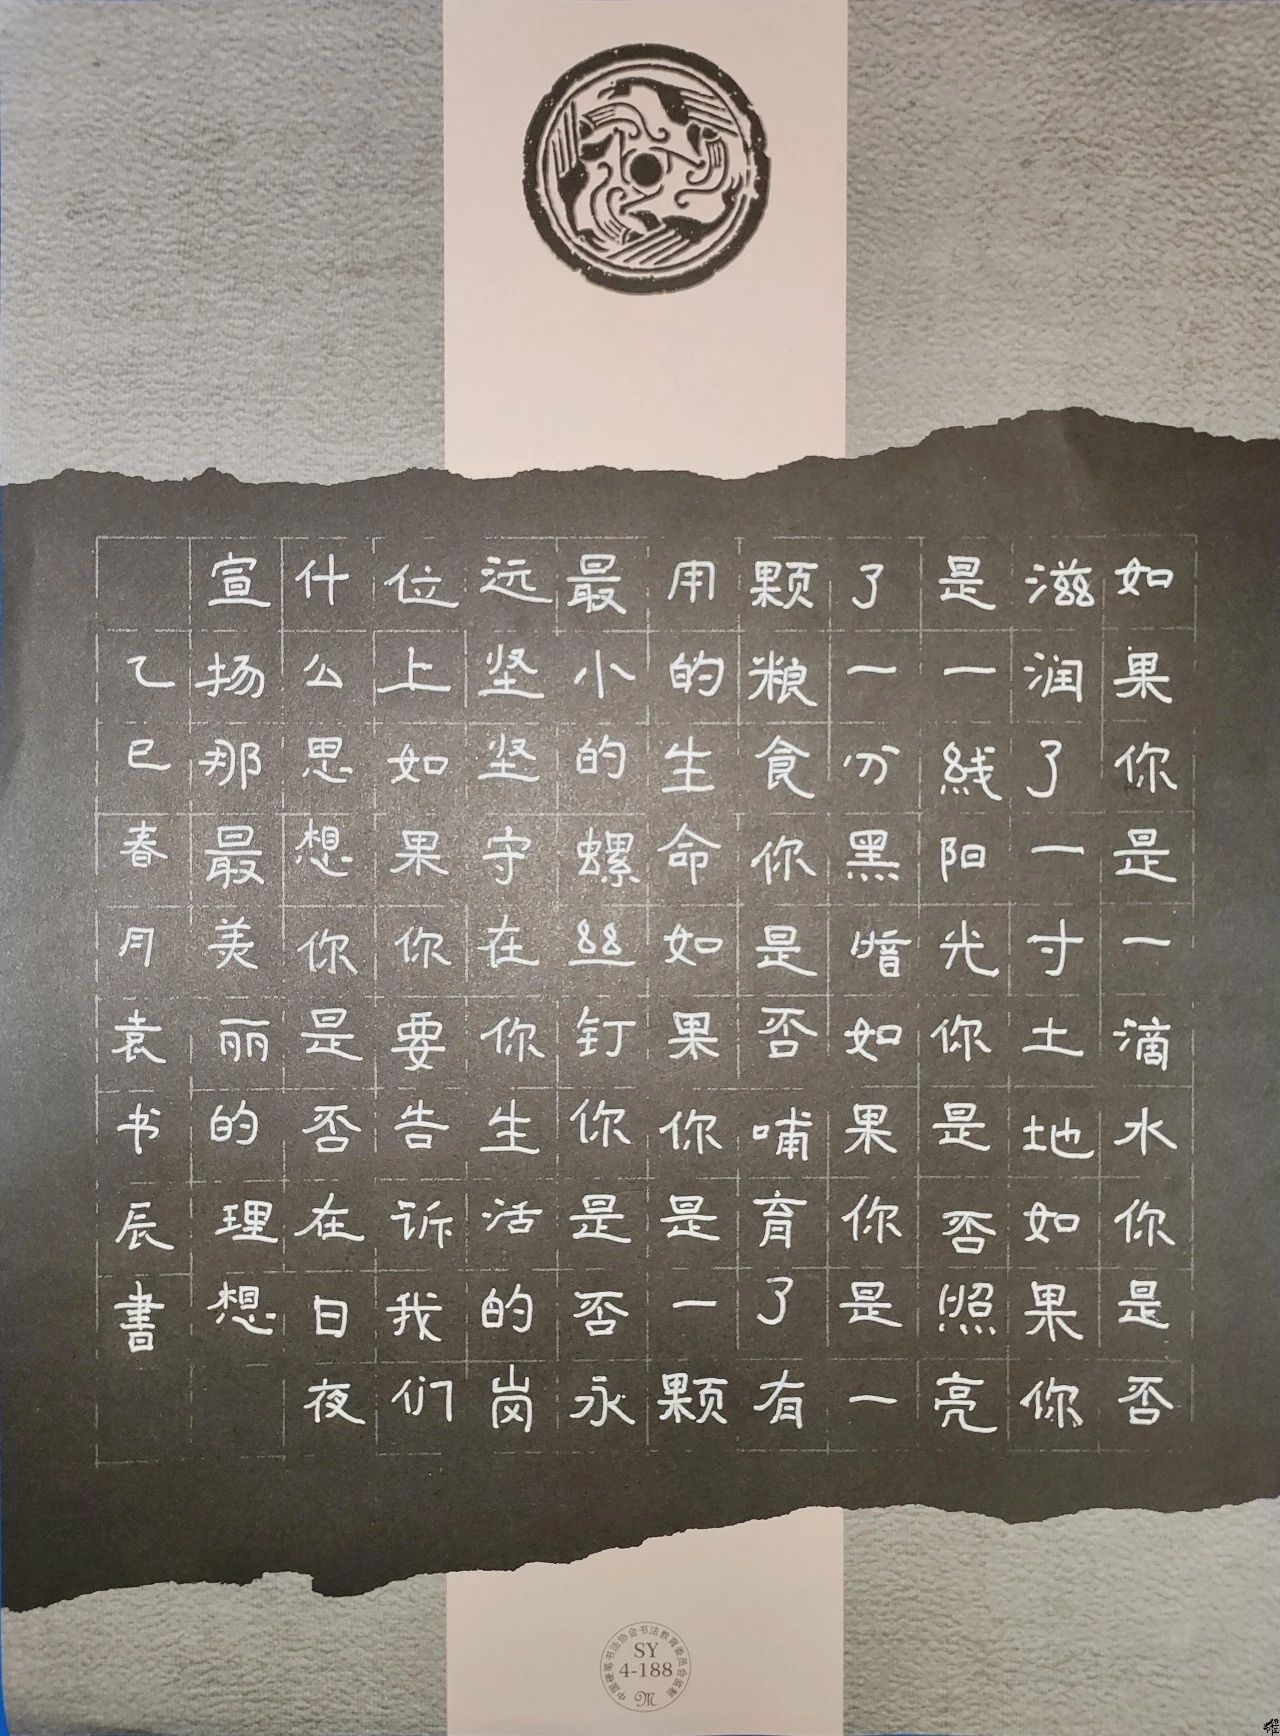 如果你是一滴水你是否
滋润了一寸土地如果你
是一线阳光你是否照亮
了一分黑暗如果你是一
颗粮食你是否哺育了有
用的生命如果你是一颗
最小的螺丝钉你是否永
远坚坚守在你生活的岗
位上如果你要告诉我们
什么思想你是否在日夜
宣扬那最美丽的理想
乙巳春月袁书辰書
中国硬笔书法协会书法教育委员会监制
SY
4-188
M